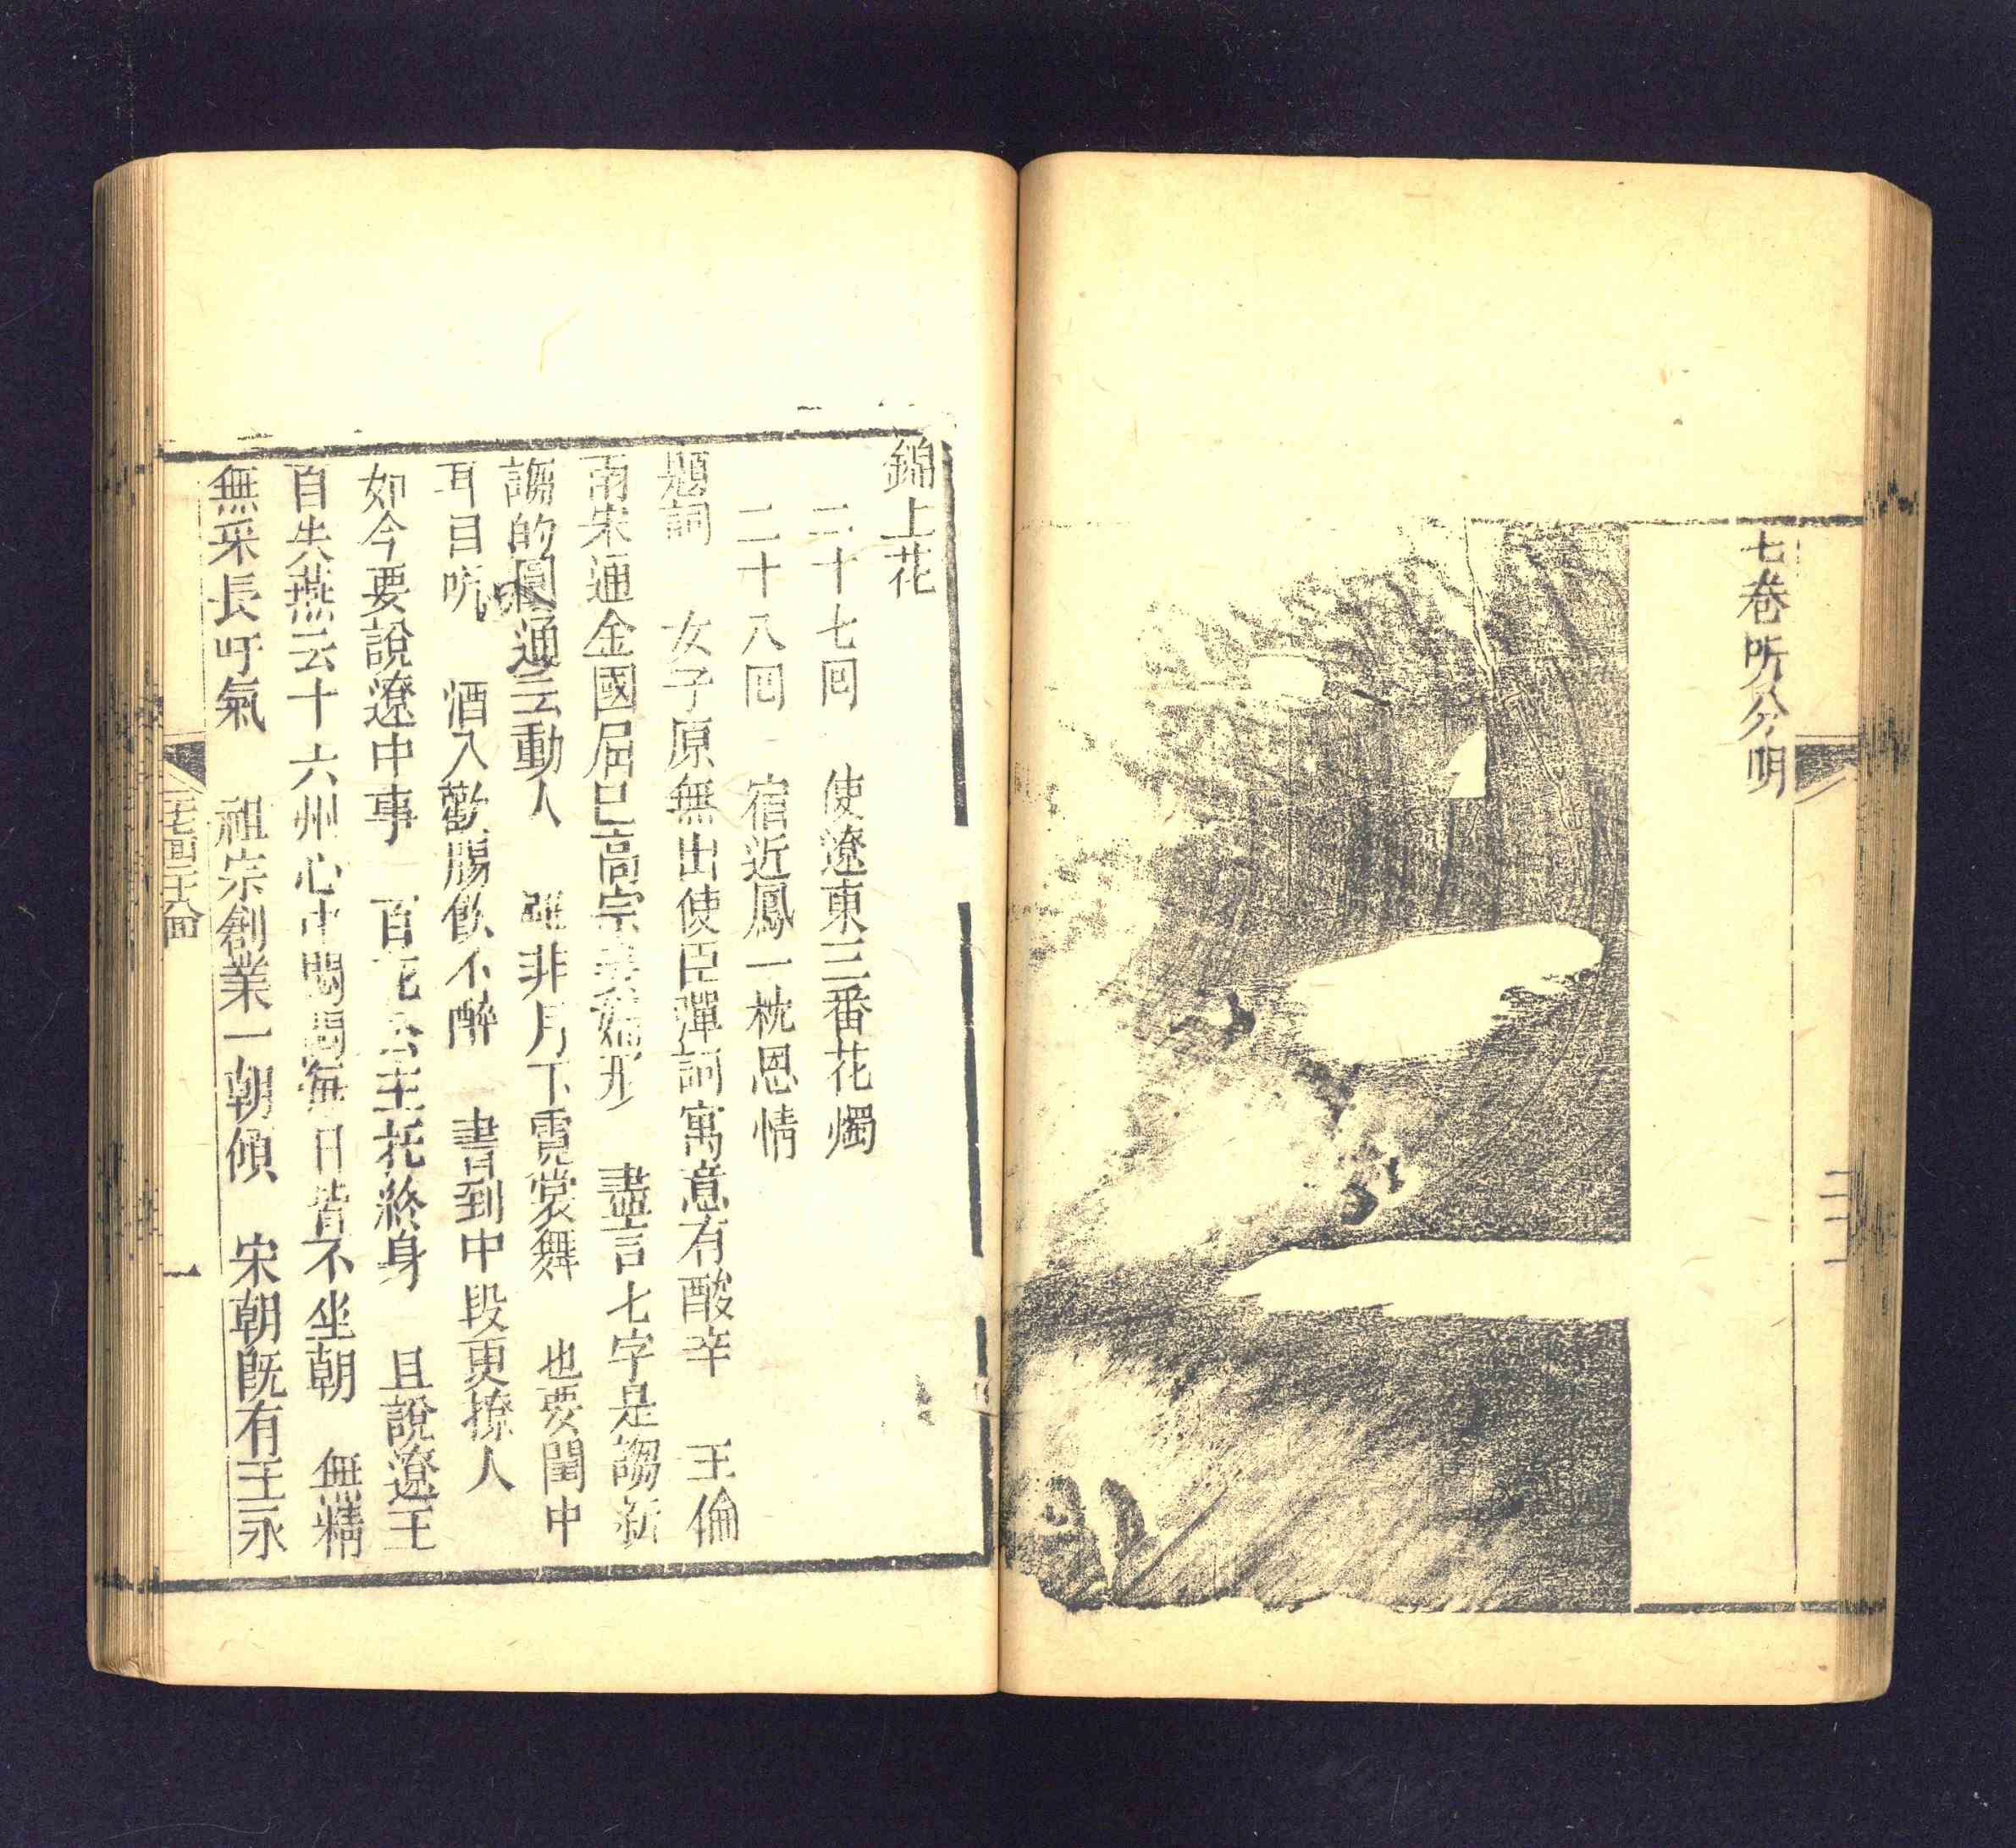 七巻听分明
二十
錦上花
二十七回 使遼東三番花燭
二十八囘 宿近鳳一枕恩情
題詞 女子原無出使臣彈詞寓意有酸辛 王倫
南宋通金國屈已高宗 盡言七字是謅新
謅的圓通云動人 非月下霓裳舞 也要閨中
耳目吭 酒入歡腸飲不醉 書到中段更撩人
如今要說遼中事 百花公主托終身 且說遼王
自失燕云十六州心中悶悶每日皆不坐朝 無精
無采長吁氣 祖宗創業一朝傾 宋朝旣有王永
二十七囘王倫
一